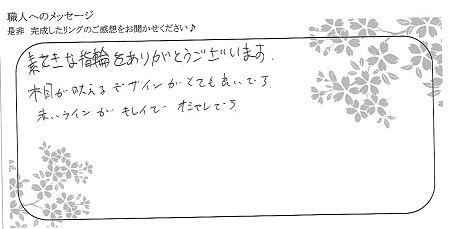 職人へのメッセージ
是非 完成したリングのご感想をお聞かせください♪
素てきな指輪をありがとうございます.
木目が映えるデザインがとても良いです.
赤いラインが キレイで オシャレです